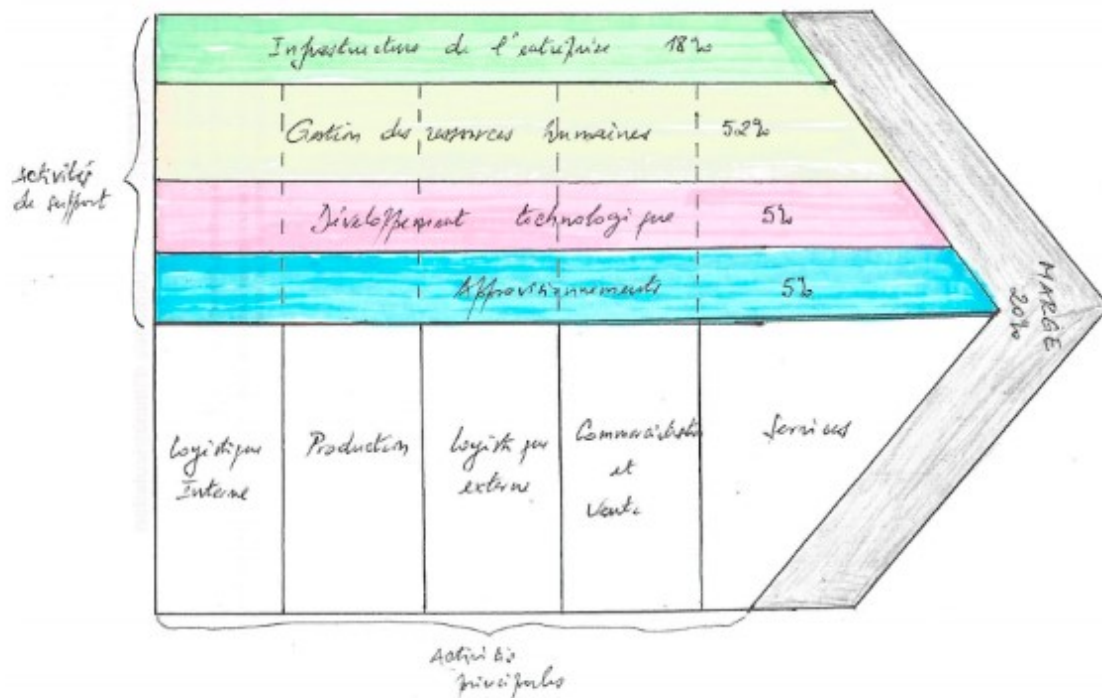 Infrastructure de l'entreprise 18%
Gestion des ressources humaines 52%
Activités
de support
Développement technologique 5%
Approvisionnements 5%
MARGE
20%
Logistique
Interne
Production
Logistique
externe
Commercialisation
et
Vente
Services
Activités
principales